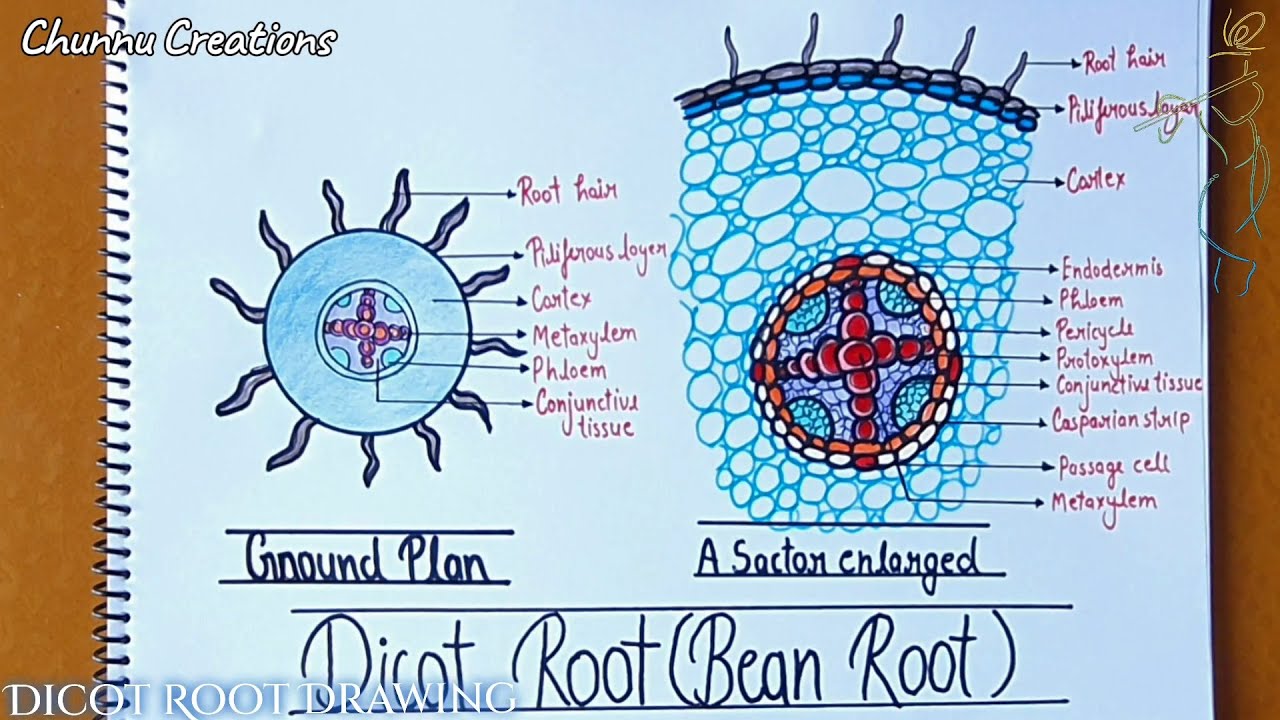 Chunnu Creations
Root hair
Piliferous layer
Cortex
Metaxylem
Phloem
Conjunctive
tissue
Ground Plan
Root hair
Piliferous layer
Cortex
Endodermis
Phloem
Pericycle
Protoxylem
Conjunctive tissue
Casparian strip
Passage cell
Metaxylem
A Sactor enlarged
Dicot Root (Bean Root)
DICOT ROOT DRAWING